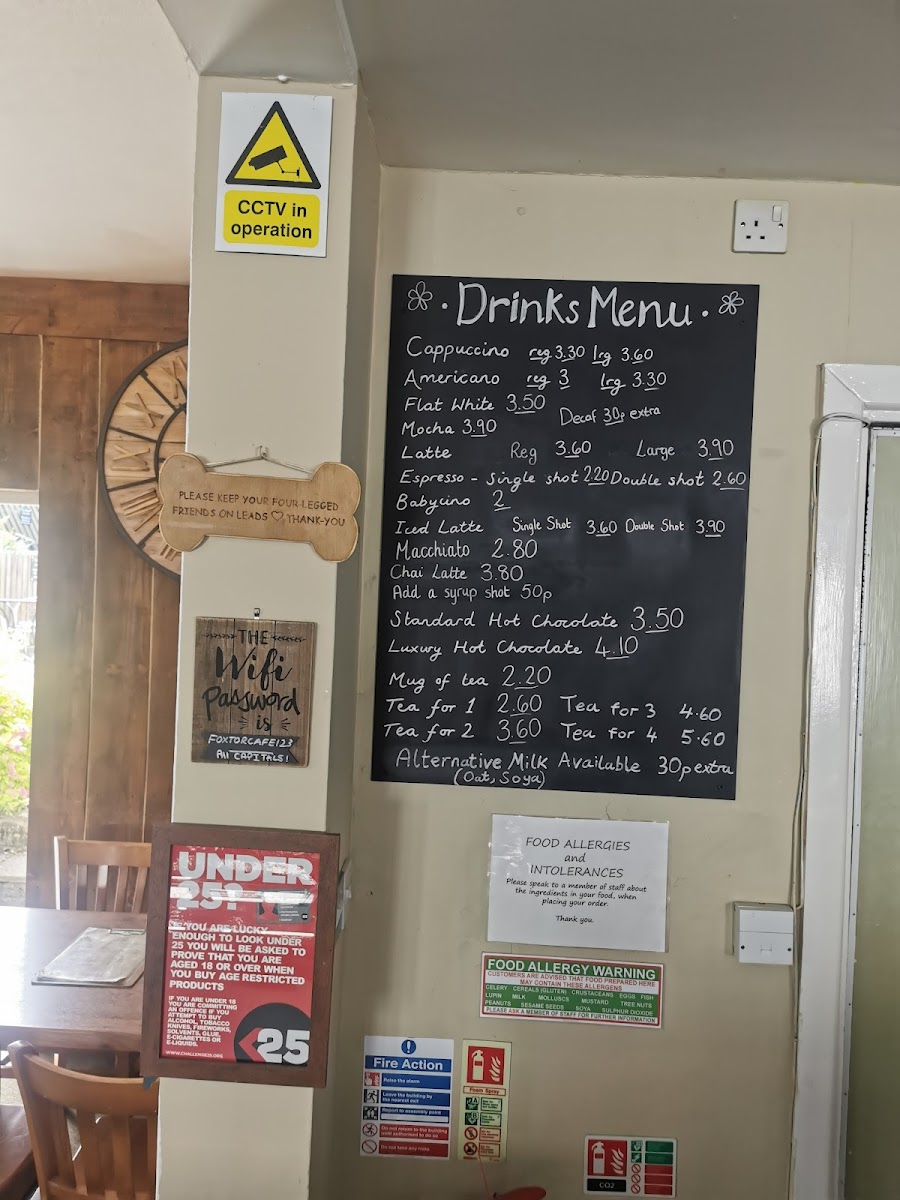 CCTV in
operation
PLEASE KEEP YOUR FOUR-LEGGED
FRIENDS ON LEADS ♡ THANK-YOU
THE
Wifi
Password
is
FOXTORCAFE123
All CAPITALS!
UNDER
25?
IF YOU ARE LUCKY
ENOUGH TO LOOK UNDER
25 YOU WILL BE ASKED TO
PROVE THAT YOU ARE
AGED 18 OR OVER WHEN
YOU BUY AGE RESTRICTED
PRODUCTS
IF YOU ARE UNDER 18
YOU ARE COMMITTING
AN OFFENCE IF YOU
ATTEMPT TO BUY
ALCOHOL, TOBACCO
KNIVES, FIREWORKS,
SOLVENTS, GLUE,
E-CIGARETTES OR
E-LIQUIDS.
WWW.CHALLENGE25.ORG
<25
· Drinks Menu ·
Cappuccino reg 3.30 lrg 3.60
Americano reg 3 lrg 3.30
Flat White 3.50
Decaf 30p extra
Mocha 3.90
Latte Reg 3.60 Large 3.90
Espresso - Single shot 2.20 Double shot 2.60
Babycino 2
Iced Latte Single Shot 3.60 Double Shot 3.90
Macchiato 2.80
Chai Latte 3.80
Add a syrup shot 50p
Standard Hot Chocolate 3.50
Luxury Hot Chocolate 4.10
Mug of tea 2.20
Tea for 1 2.60 Tea for 3 4.60
Tea for 2 3.60 Tea for 4 5.60
Alternative Milk Available 30p extra
(Oat, Soya)
FOOD ALLERGIES
and
INTOLERANCES
Please speak to a member of staff about
the ingredients in your food, when
placing your order.
Thank you.
FOOD ALLERGY WARNING
CUSTOMERS ARE ADVISED THAT FOOD PREPARED HERE
MAY CONTAIN THESE ALLERGENS
CELERY CEREALS (GLUTEN) CRUSTACEANS EGGS FISH
LUPIN MILK MOLLUSCS MUSTARD TREE NUTS
PEANUTS SESAME SEEDS SOYA SULPHUR DIOXIDE
PLEASE ASK A MEMBER OF STAFF FOR FURTHER INFORMATION
Fire Action
Raise the alarm
Leave the building by
the nearest exit
Report to assembly point
Do not return to the building
until authorised to do so
Do not take any risks
Foam Spray
CO2